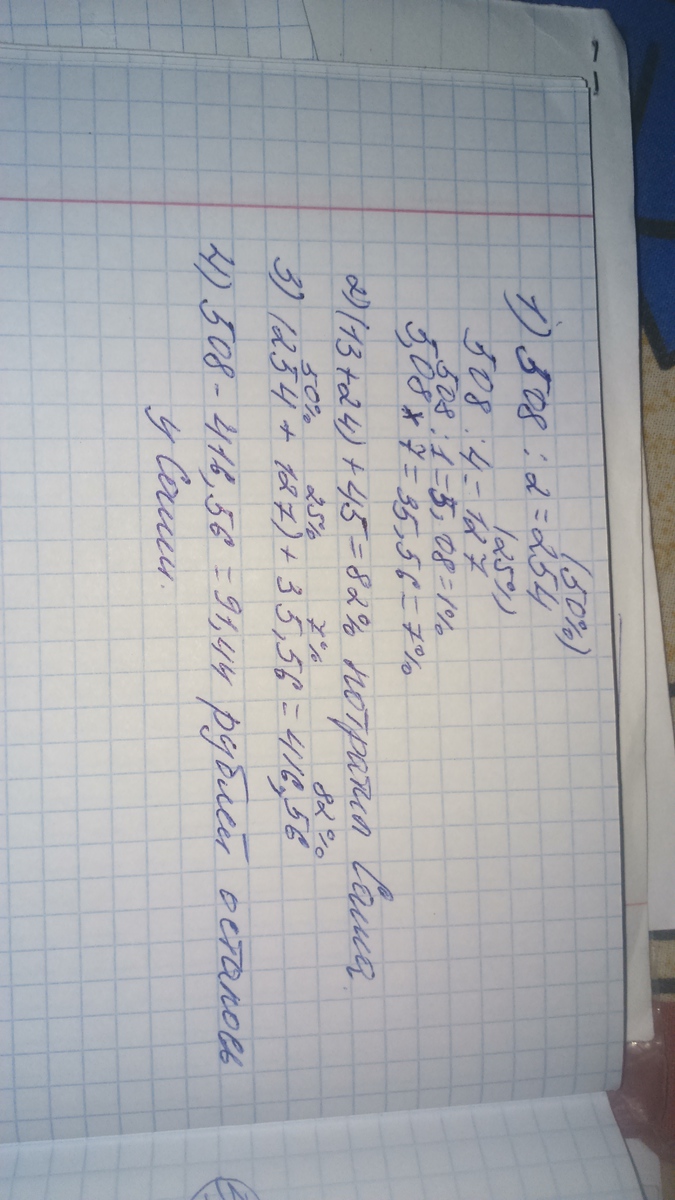 1) 508 : 2 = 254 (50%)
508 : 4 = 127 (25%)
508 : 1 = 5,08 = 1%
5,08 × 7 = 35,56 = 7%
2) (13 + 24) + 45 = 82% потратил Саша.
50% 25% 7% 82%
3) (254 + 127) + 35,56 = 416,56
4) 508 - 416,56 = 91,44 рублей осталось
у Саши.